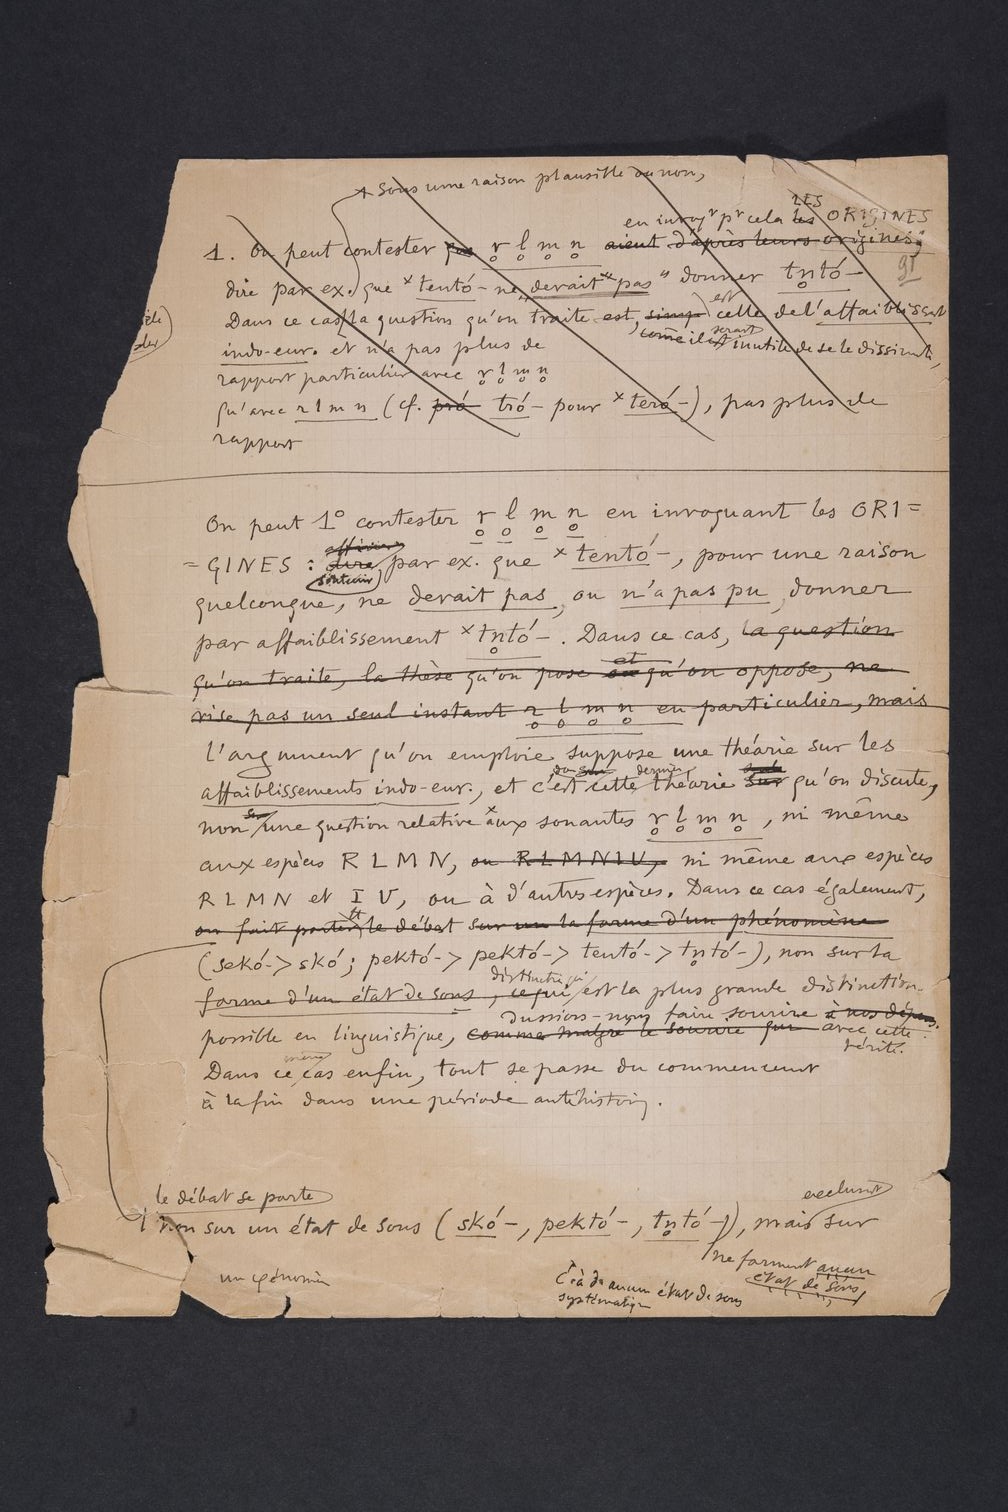 Sous une raison plausible ou non,
en invoqt pr cela les LES ORIGINES
1. On peut contester que r̥ l̥ m̥ n̥ aient d'après leurs origines;
91
dire par ex. que ×tentó- ne „devait pas" donner tn̥tó-
Dans ce cas la question qu'on traite est, simp est celle de l'affaiblissent
comme il est serait inutile de se le dissimuler,
indo-eur. et n'a pas plus de
rapport particulier avec r̥ l̥ m̥ n̥
qu'avec r l m n (cf. pró tró- pour ×teró-), pas plus de
rapport
On peut 1º contester r̥ l̥ m̥ n̥ en invoquant les ORI=
=GINES : affirmer dire soutenir par ex. que ×tentó-, pour une raison
quelconque, ne devait pas, ou n'a pas pu, donner
par affaiblissement ×tn̥tó-. Dans ce cas, la question
qu'on traite, la thèse qu'on pose ou et qu'on oppose, ne
vise pas un seul instant r̥ l̥ m̥ n̥ en particulier, mais
l'argument qu'on emploie suppose une théorie sur les
affaiblissements indo-eur., et c'est cette dernière théorie sur qu'on discute,
non sur une question relative aux sonantes r̥ l̥ m̥ n̥, ni même
aux espèces R L M N, ou R L M N I U, ni même aux espèces
R L M N et I U, ou à d'autres espèces. Dans ce cas également,
on fait porter le débat sur un la forme d'un phénomène
(sekó-> skó; pektó-> pektó-> tentó-> tn̥tó-), non sur la
forme d'un état de sons, ce qui distinction qui est la plus grande distinction
possible en linguistique, comme malgré le sourire que dussions-nous faire sourire à nos dépens avec cette vérité.
Dans ce même cas enfin, tout se passe du commencement
à la fin dans une période antéhistoriq.
le débat se porte
non sur un état de sons (skó-, pektó-, tn̥tó-), mais sur
exclusivt
ne formant aucun
état de sons,
un phénomène
C. à d. aucun état de sons
systématique